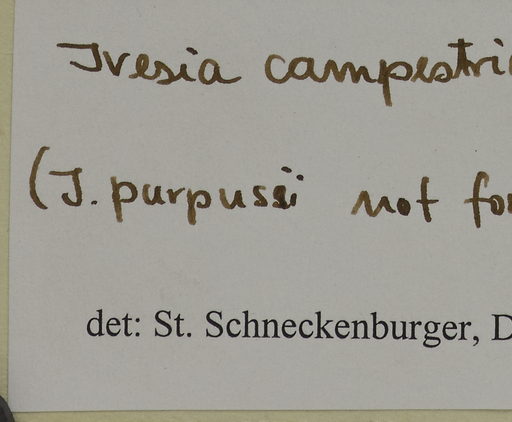 Ivesia campestri
(I. purpusii not fo
det: St. Schneckenburger, D